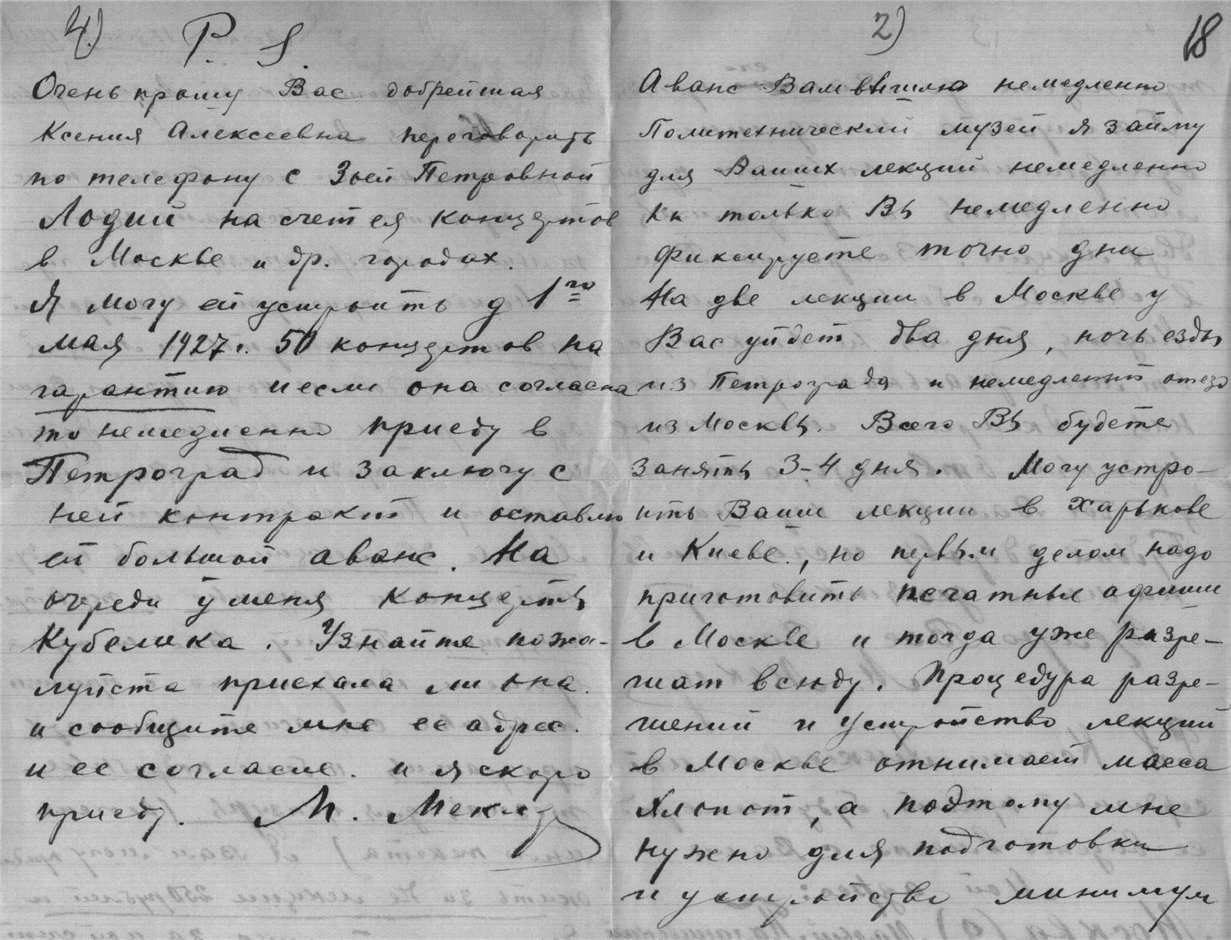 4)
P. S.
Очень прошу Вас добрейшая
Ксения Алексеевна переговорить
по телефону с Зоей Петровной
Лодий на счет ея концертов
в Москве и др. городах.
Я могу ей устроить д 1го
мая 1927 г. 50 концертов на
гарантию и если она согласна
то немедленно приеду в
Петроград и заключу с
ней контракт и оставлю
ей большой аванс. На
очереди у меня концерты
Кубелика. Узнайте пожа-
луйста приехала ли она.
и сообщите мне ее адрес.
и ее согласие. и я скоро
приеду. М. Меклер
2)
18
Аванс Вам вышлю немедленно
Политехнический музей я займу
для Ваших лекций немедленно
Как только Вы немедленно
фиксируете точно дни
На две лекции в Москве у
Вас уйдет два дня, ночь езды
из Петрограда и немедленный отезд
из Москвы. Всего Вы будете
заняты 3-4 дня. Могу устро-
ить Ваши лекции в Харькове
и Киеве, но первым делом надо
приготовить печатные афиши
в Москве и тогда уже разре-
шат всюду. Процедура разре-
шений и устройство лекций
в Москве отнимает масса
хлопот, а поэтому мне
нужно для подготовки
и устройства минимум